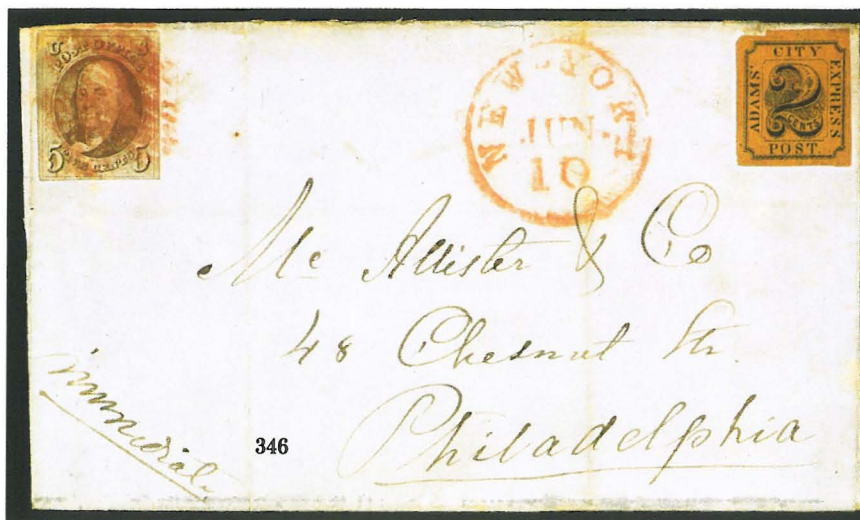 POST OFFICE
5 5
FIVE CENTS
NEW-YORK
JUN.
10
CITY
ADAMS' 2 EXPRESS
CENTS
POST.
Mc Allister & Co
48 Chesnut Str.
Philadelphia
immediate
346